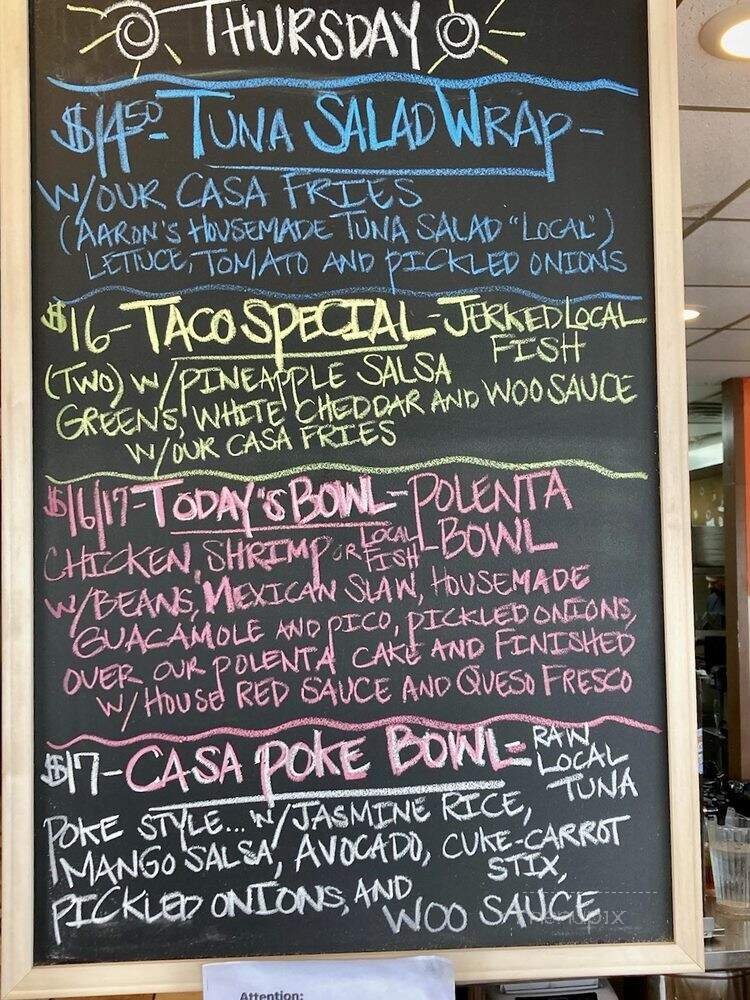 THURSDAY
$14.50- TUNA SALAD WRAP-
W/OUR CASA FRIES
(AARON'S HOUSEMADE TUNA SALAD "LOCAL")
LETTUCE, TOMATO AND PICKLED ONIONS
$16-TACO SPECIAL-JERKED LOCAL
FISH
(TWO) W/PINEAPPLE SALSA
GREENS, WHITE CHEDDAR AND WOO SAUCE
W/OUR CASA FRIES
$16/17-TODAY'S BOWL-POLENTA
BOWL
CHICKEN, SHRIMP OR LOCAL FISH-
W/BEANS, MEXICAN SLAW, HOUSEMADE
GUACAMOLE AND PICO, PICKLED ONIONS,
OVER OUR POLENTA CAKE AND FINISHED
W/HOUSE RED SAUCE AND QUESO FRESCO
$17-CASA POKE BOWL=RAW
LOCAL
TUNA
POKE STYLE... W/JASMINE RICE,
MANGO SALSA, AVOCADO, CUKE-CARROT
STIX,
PICKLED ONIONS, AND
WOO SAUCE
menupix
Attention: